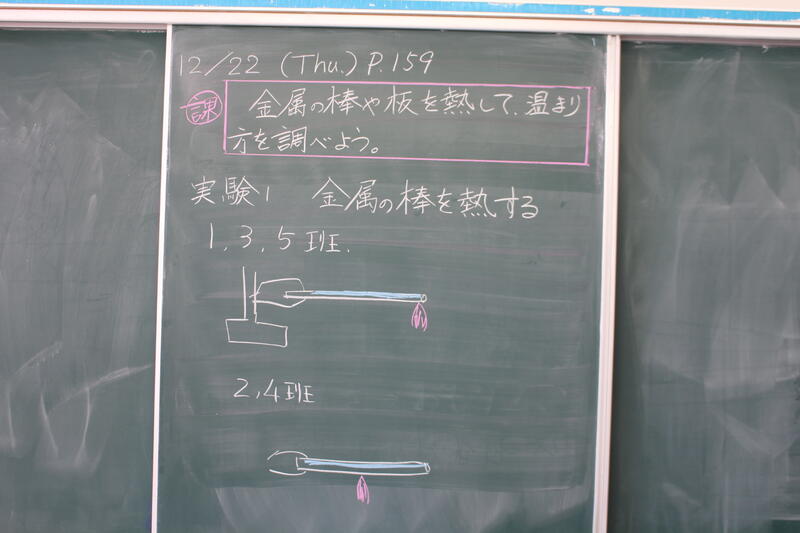 12/22 (Thu.) P.159
課 金属の棒や板を熱して、温まり
方を調べよう。
実験1 金属の棒を熱する
1,3,5班.
2,4班